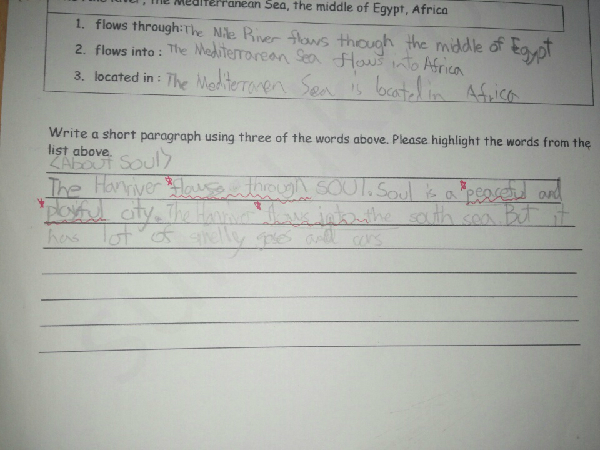 , The Mediterranean Sea, the middle of Egypt, Africa
1. flows through: The Nile River flows through the middle of Egypt
2. flows into : The Mediterranean Sea flows into Africa
3. located in : The Mediterranen Sea is located in Africa
Write a short paragraph using three of the words above. Please highlight the words from the
list above.
<About Soul>
The Hanriver flowse through SOUL. Soul is a peaceful and
playful city. The Hanriver flows into the south sea. But it
has lot of smelly and cars